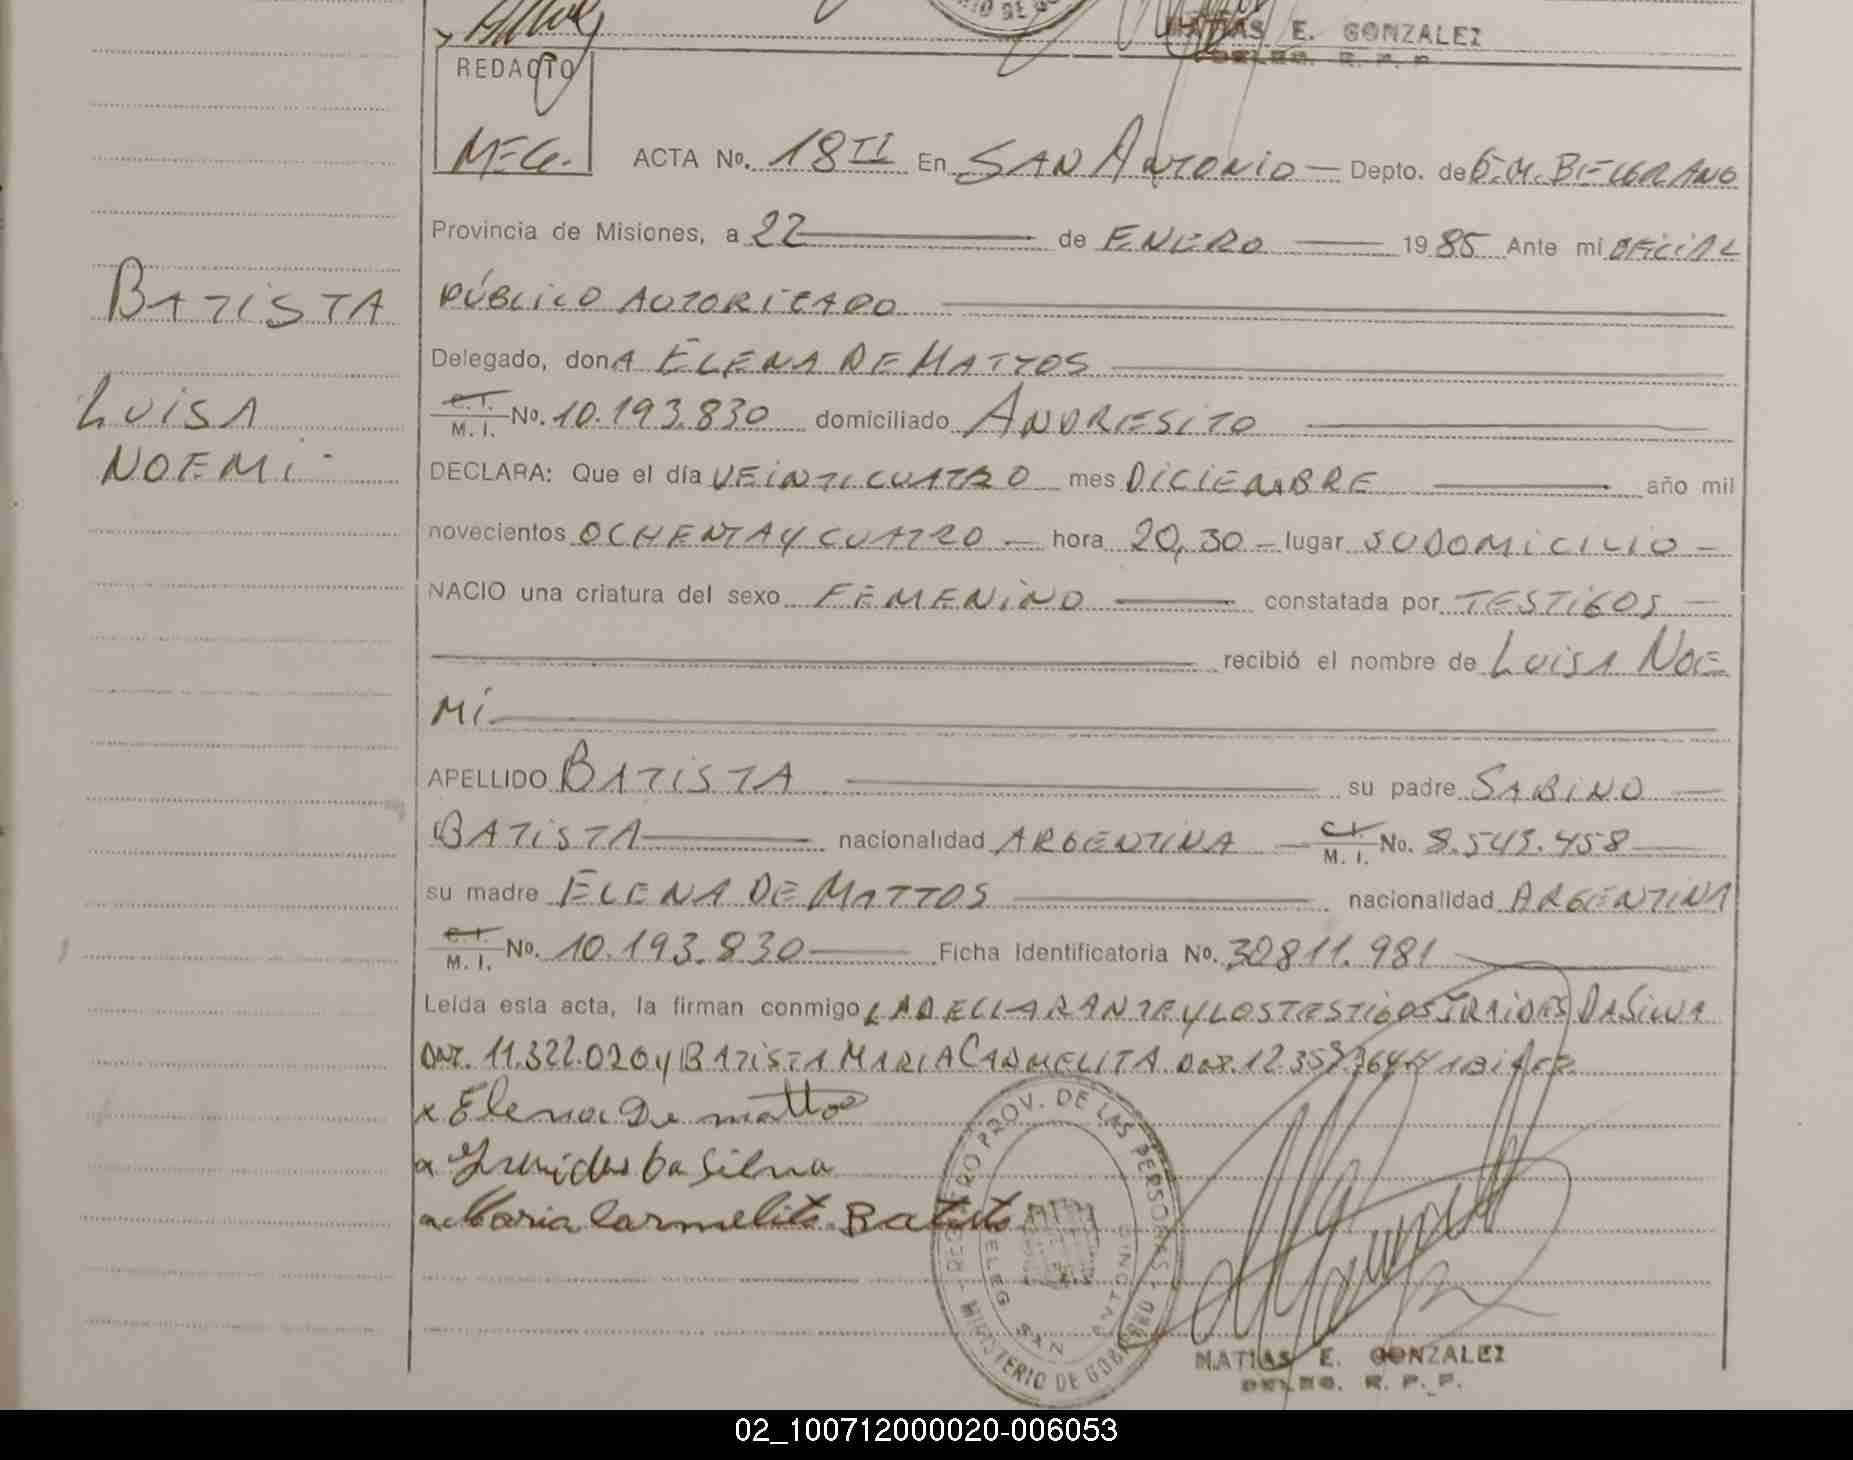 MATIAS E. GONZALEZ
DELEG. R. P. P.
REDACTO
MEG.
ACTA No. 18 II En SAN ANTONIO — Depto. de G.M. BELGRANO
Provincia de Misiones, a 22 — de ENERO — 1985 Ante mi OFICIAL
PÚBLICO AUTORIZADO
Delegado, donA ELENA DE MATTOS
C. I. M. I. No. 10.193.830 domiciliado ANDRESITO
DECLARA: Que el día VEINTICUATRO mes DICIEMBRE — año mil
novecientos OCHENTA Y CUATRO — hora 20,30 — lugar SU DOMICILIO —
NACIO una criatura del sexo FEMENINO — constatada por TESTIGOS —
recibió el nombre de LUISA NOE
MI
APELLIDO BATISTA — su padre SABINO —
BATISTA — nacionalidad ARGENTINA — C. I. M. I. No. 8.543.458
su madre ELENA DE MATTOS — nacionalidad ARGENTINA
C. I. M. I. No. 10.193.830 — Ficha Identificatoria No. 30811.981
Leída esta acta, la firman conmigo LA DECLARANTE Y LOS TESTIGOS IRAIDES DA SILVA
DNI. 11.322.020 y BATISTA MARIA CARMELITA DNI. 12.353.364
x Elena De mattos
x Iraides Da Silva
x Maria Carmelita Batista
BATISTA
LUISA
NOEMI
REGISTRO PROV. DE LAS PERSONAS - MINISTERIO DE GOBIERNO
DELEG. SAN ANTONIO
MATIAS E. GONZALEZ
DELEG. R. P. P.
02_100712000020-006053